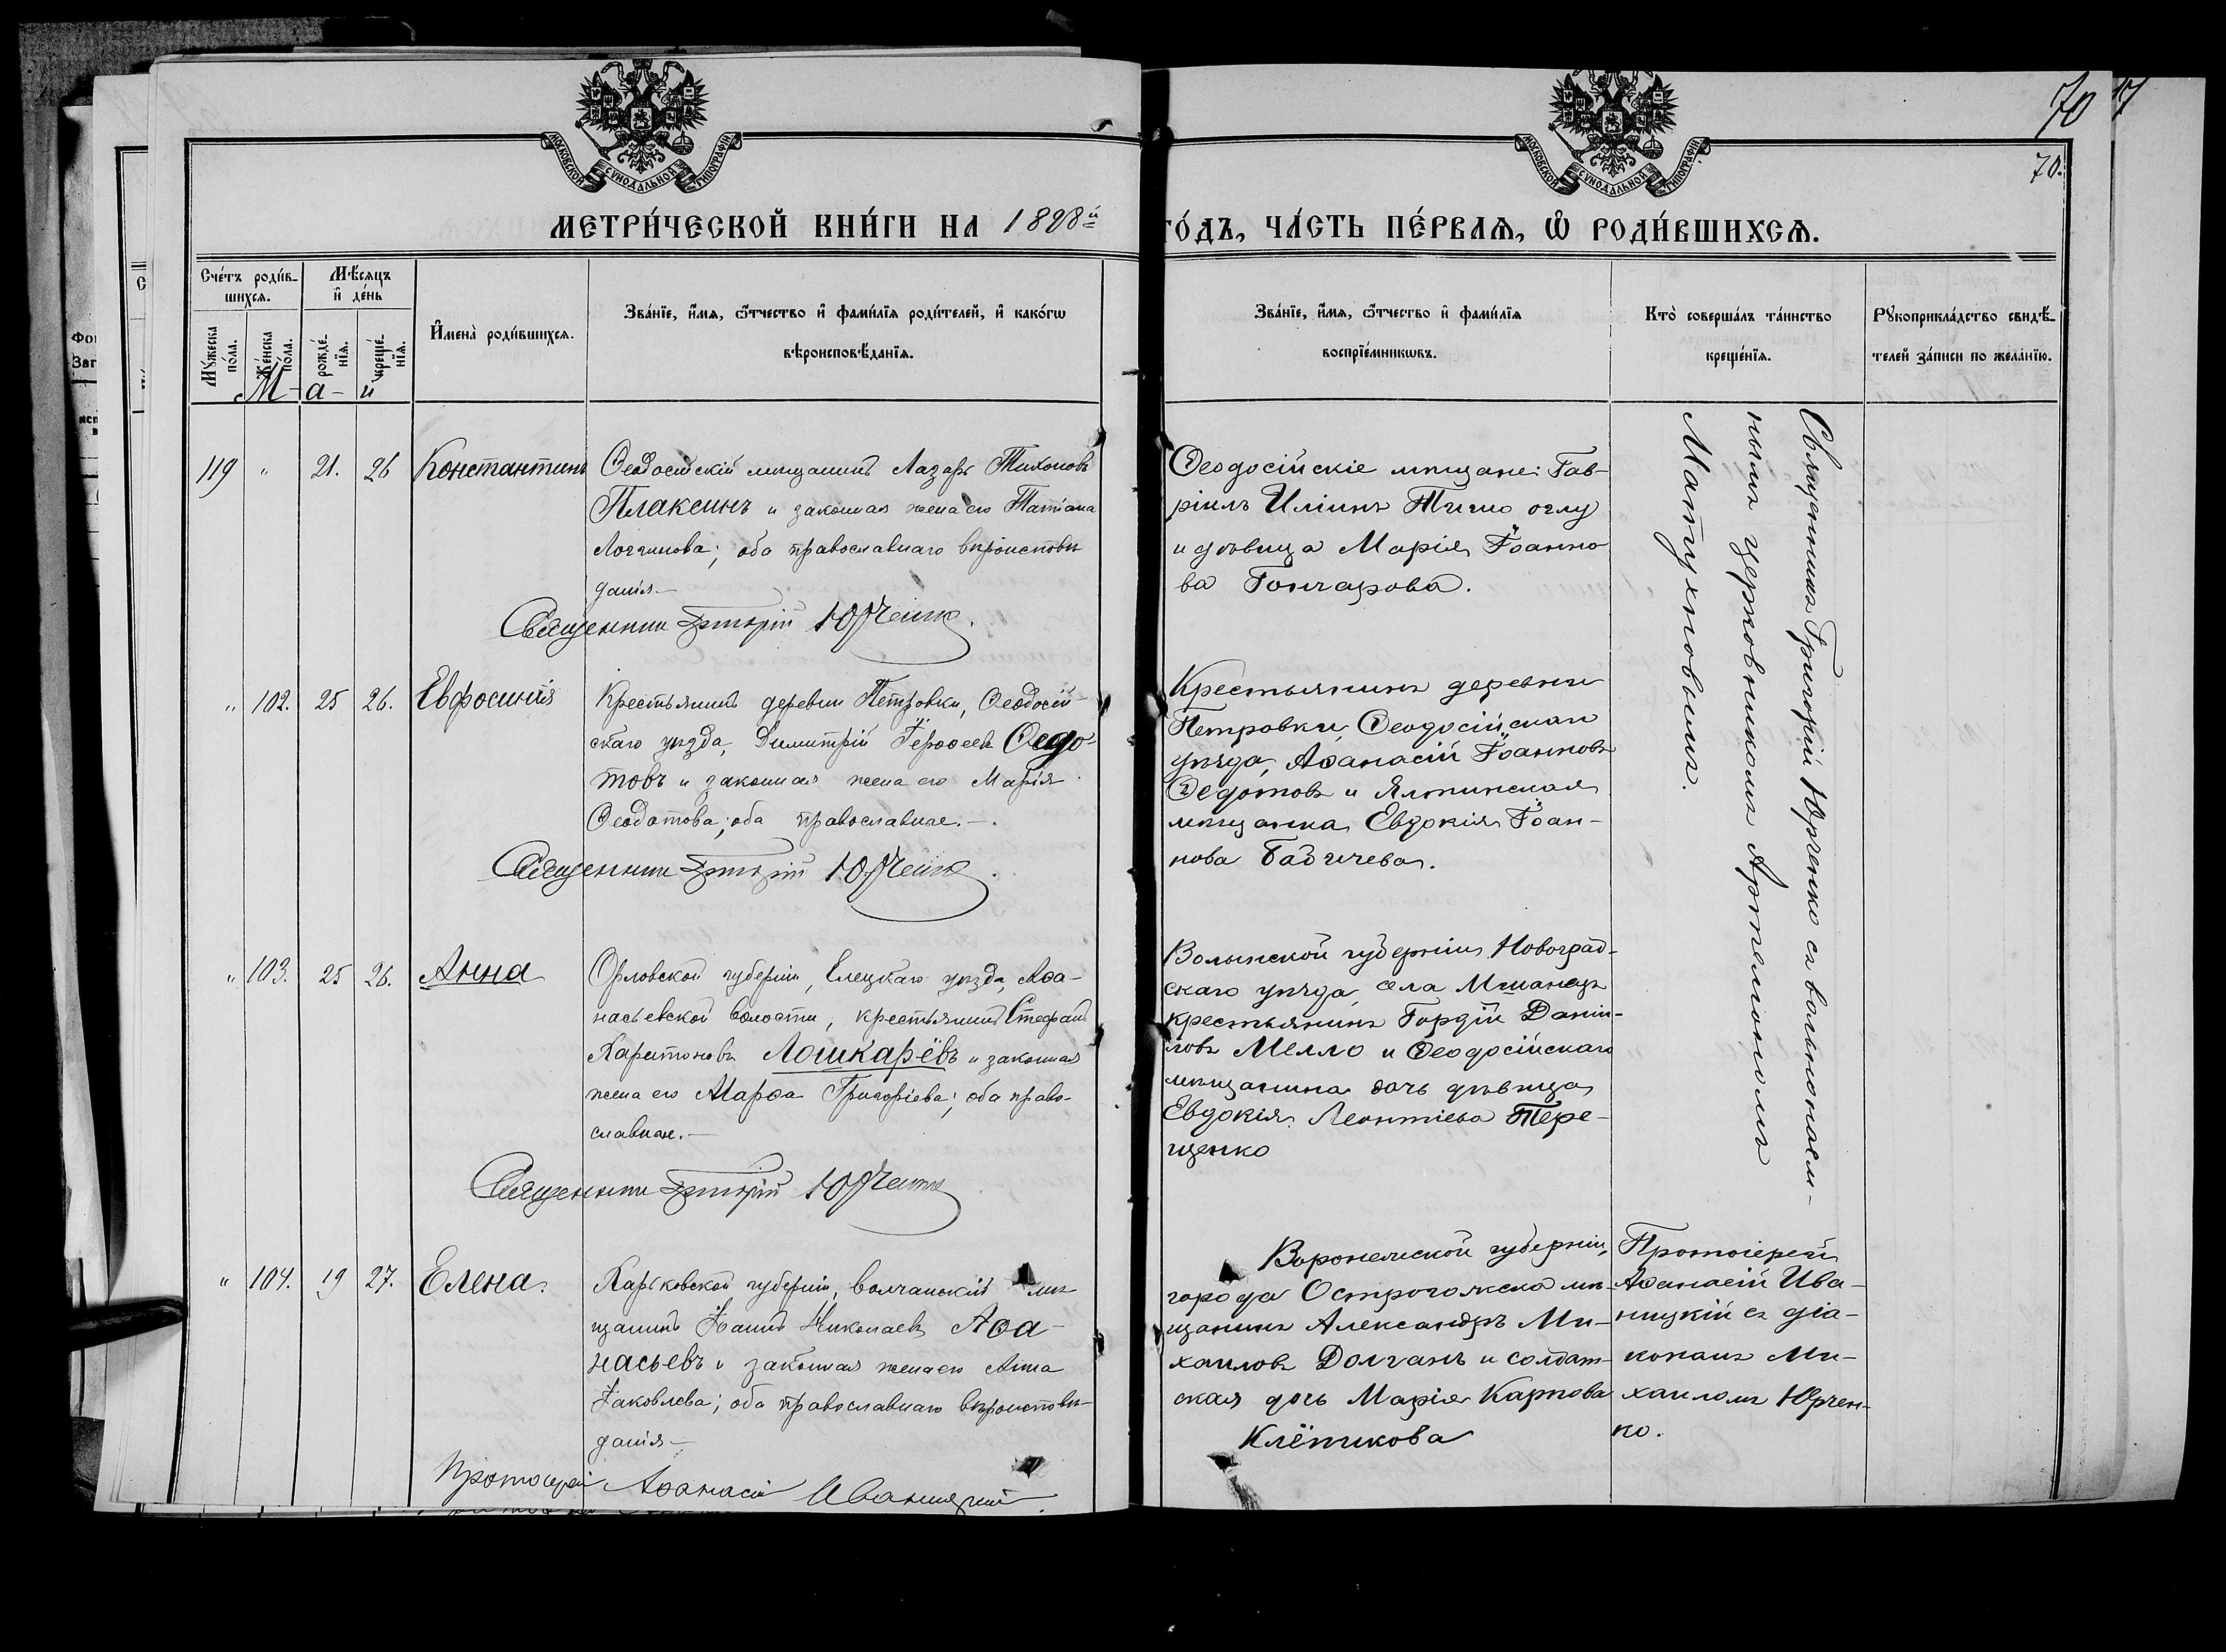 70 17
70.
МОСКОВСКОЙ СУНОДАЛЬНОЙ ТИПОГРАФІИ.
МОСКОВСКОЙ СУНОДАЛЬНОЙ ТИПОГРАФІИ.
МЕТРИ́ЧЕСКОЙ КНИ́ГИ НА 1898й
ГО́ДЪ, ЧА́СТЬ ПЕ́РВАѦ, Ѡ РОДИ́ВШИХСѦ.
Сче́тъ роди́в-
шихсѧ.
Мꙋ́жеска по́ла.
Же́нска по́ла.
Мѣ́сѧцъ
и҆ де́нь
рожде́-
нїѧ.
креще́-
нїѧ.
И҆мена̀ роди́вшихсѧ.
Зва́нїе, и҆́мѧ, ѻ҆́тчество и҆ фами́лїѧ роди́телей, и҆ како́гѡ
вѣроисповѣ́данїѧ.
Зва́нїе, и҆́мѧ, ѻ҆́тчество и҆ фами́лїѧ
воспрїе́мникѡвъ.
Кто̀ соверша́лъ та́инство
креще́нїѧ.
Рꙋкоприкла́дство свидѣ́-
телей за́писи по жела́нїю.
М-а-й
119 " 21. 26 Константинъ
Ѳеодосійскій мѣщанинъ Лазарь Тихоновъ
Плаксинъ и законная жена его Татіана
Логгинова; оба православнаго вѣроисповѣ
данія.—
Священникъ Григорій Юрченко.
Ѳеодосійскіе мѣщане: Гав-
ріилъ Иліинъ Тигио оглу
и дѣвица Марія Іоанно
ва Гончарова.
Священникъ Григорій Юрченко съ вольнонаем-
нымъ церковникомъ Артемономъ
Матухновымъ.
" 102. 25 26. Евфросинія
Крестьянинъ деревни Петровки, Ѳеодосій-
скаго уѣзда, Димитрій Іероѳеевъ Ѳедо-
товъ и законная жена его Марія
Ѳеодотова; оба православные.—.
Священникъ Григорій Юрченко.
Крестьянинъ деревни
Петровки, Ѳеодосійскаго
уѣзда, Аѳанасій Іоанновъ
Ѳедотовъ и Ялтинская
мѣщанка Евдокія Іоан-
нова Бабичева.
" 103. 25 26. Анна
Орловской губерніи, Елецкаго уѣзда, Аѳа-
насьевской волости, крестьянинъ Стефанъ
Харитоновъ Лошкарёвъ и законная
жена его Марѳа Григоріева; оба право-
славные.—
Священникъ Григорій Юрченко.
Волынской губерніи, Новоград-
скаго уѣзда, села Мшанецъ
крестьянинъ Гордій Даніи-
ловъ Мелло и Ѳеодосійскаго
мѣщанина дочь дѣвица
Евдокія Леонтіева Тере-
щенко
" 104. 19 27. Елена.
Харьковской губерніи, волчанскій мѣ
щанинъ Іоаннъ Николаевъ Аѳа-
насьевъ и законная жена его Анна
Іаковлева; оба православнаго вѣроисповѣ-
данія—
Протоіерей Аѳанасій Иваницкій.
Воронежской губерніи,
города Острогожска мѣ-
щанинъ Александръ Ми-
хаиловъ Долганъ и солдат-
ская дочь Марія Карпова
Клёпикова
Протоіерей
Аѳанасій Ива-
ницкій съ діа-
кономъ Ми-
хаиломъ Юрчен-
ко.